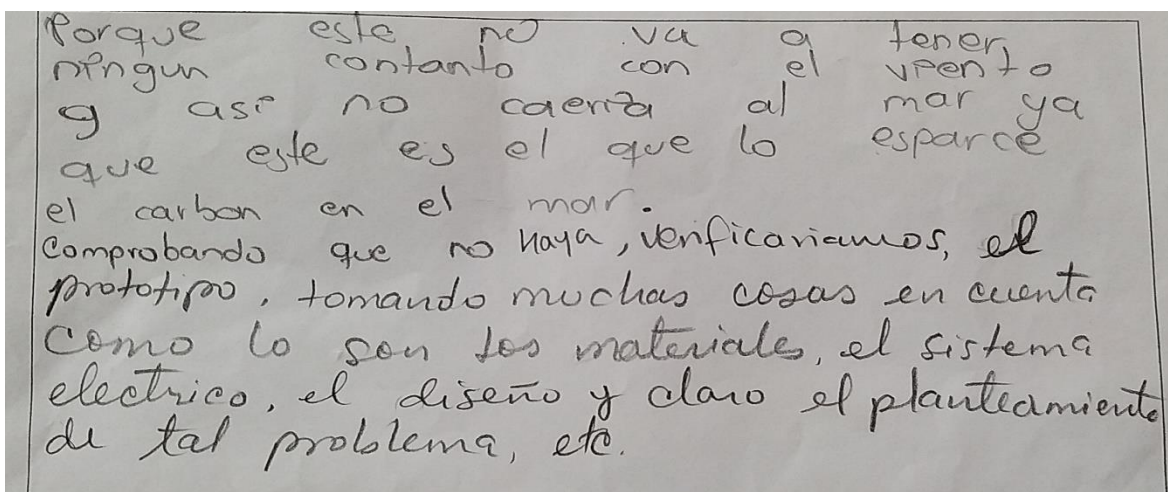 Porque este no va a tener,
ningun contanto con el viento
y asi no caeria al mar ya
que este es el que lo esparce
el carbon en el mar.
Comprobando que no haya, verificariamos, el
prototipo, tomando muchas cosas en cuenta
Como lo son los materiales, el sistema
electrico, el diseño y claro el planteamiento
de tal problema, etc.